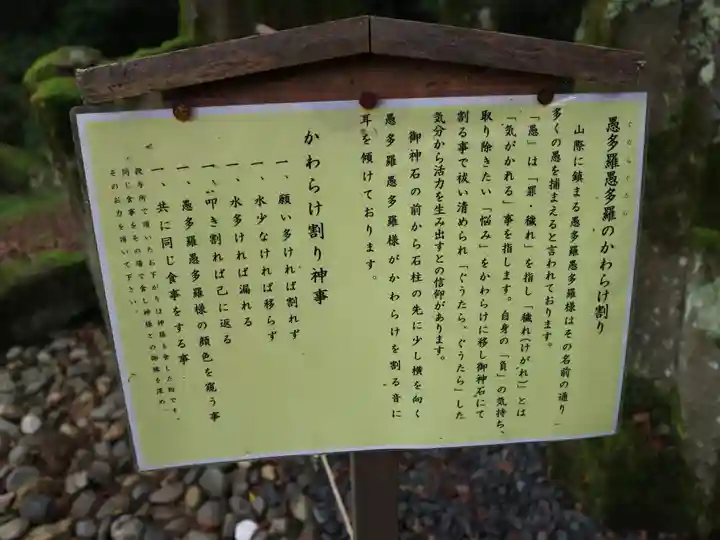 愚多羅愚多羅のかわらけ割り
山際に鎮まる愚多羅愚多羅様はその名前の通り
多くの愚を捕まえると言われております。
「愚」は「罪・穢れ」を指し「穢れ(けがれ)」とは
「気がかれる」事を指します。自身の「負」の気持ち、
取り除きたい「悩み」をかわらけに移し御神石にて
割る事で祓い清められ「ぐうたら、ぐうたら」した
気分から活力を生み出すとの信仰があります。
御神石の前から石柱の先に少し横を向く
愚多羅愚多羅様がかわらけを割る音に
耳を傾けております。
かわらけ割り神事
一、願い多ければ割れず
一、水少なければ移らず
一、水多ければ漏れる
一、叩き割れば己に返る
一、愚多羅愚多羅様の顔色を窺う事
一、共に同じ食事をする事
授与所で頂いたお下がりは神様も食した物です。
同じ食事をその場で食し神様との御縁を深め、
そのお力を頂いて下さい。